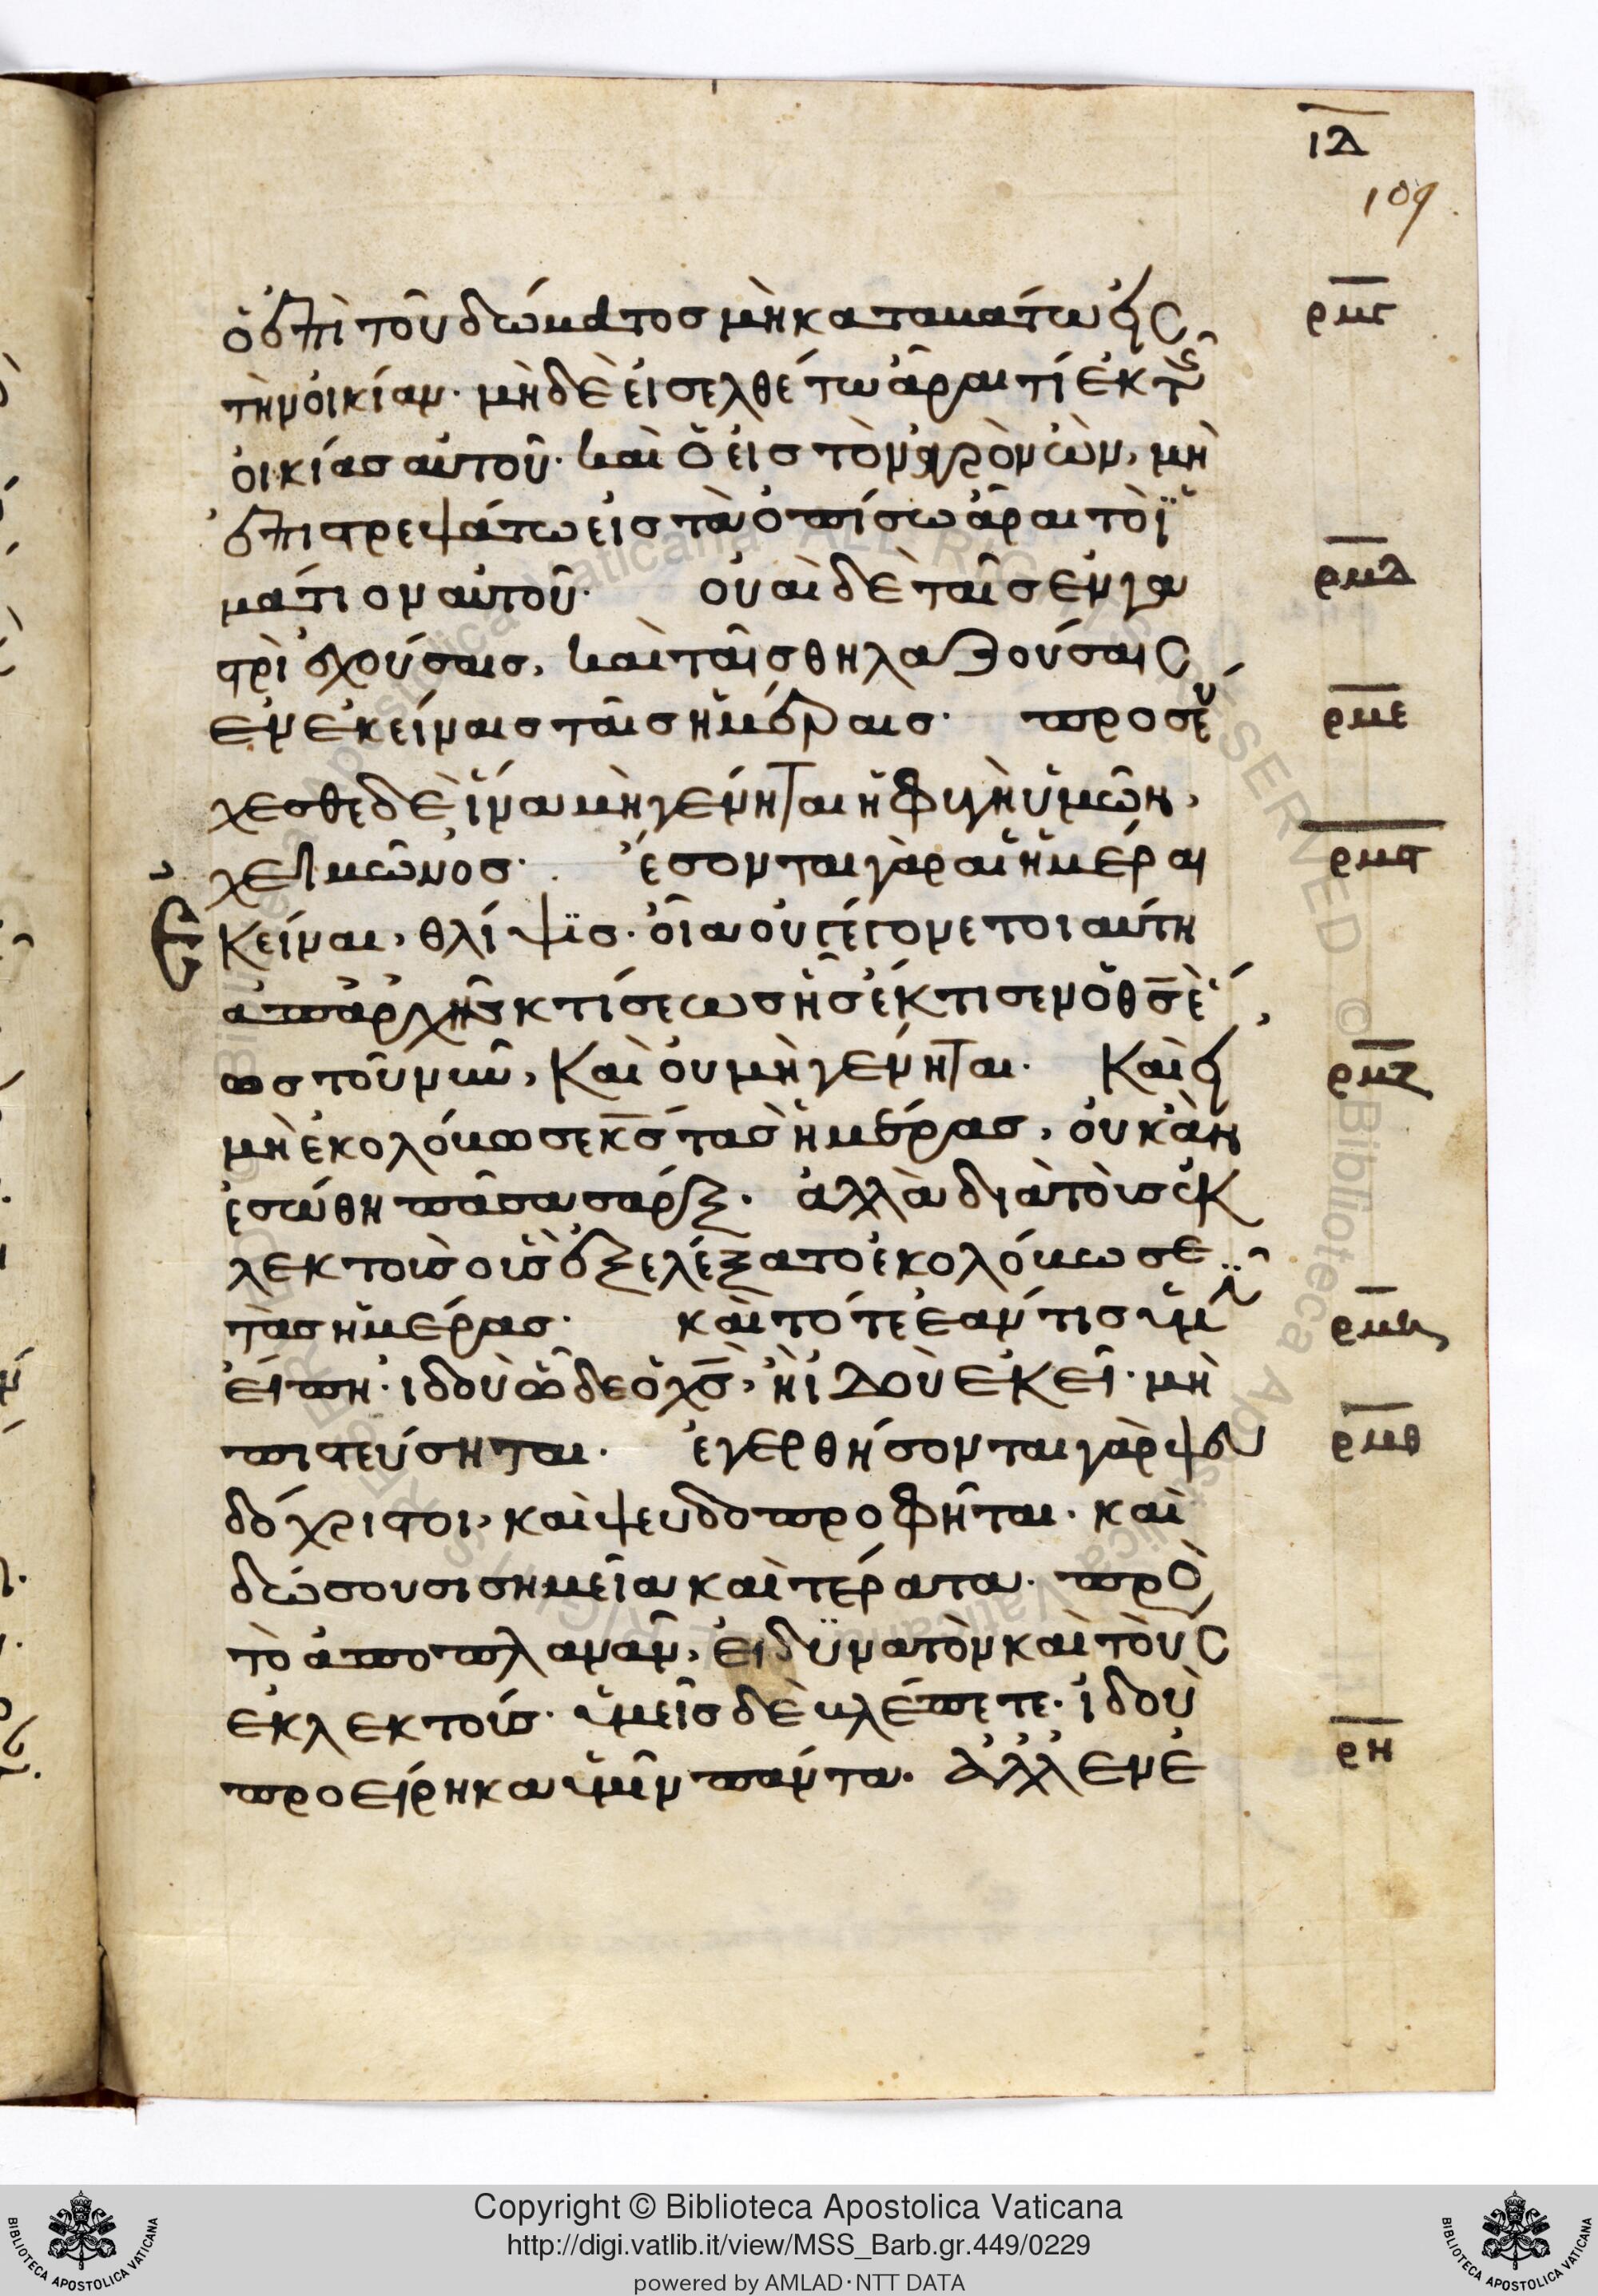 ιδ
109
ὁ ἐπὶ τοῦ δώματος μὴ καταβάτω εἰς
ρμγ
τὴν οἰκίαν· μὴ δὲ εἰσελθέτω ἆραι τί ἐκ τῆς
οἰκίας αὐτοῦ· καὶ ὁ εἰς τὸν ἀγρὸν ὢν, μὴ
ἐπιστρεψάτω εἰς τὰ ὀπίσω ἆραι τὸ ἱ
μάτιον αὐτοῦ· οὐαὶ δὲ ταῖς ἐν γα
ρμδ
στρὶ ἐχούσαις, καὶ ταῖς θηλαζούσαις
ἐν ἐκείναις ταῖς ἡμέραις· προσεύ
ρμε
χεσθε δὲ ἵνα μὴ γένηται ἡ φυγὴ ὑμῶν,
χειμῶνος· ἔσονται γὰρ αἱ ἡμέραι
ρμϛ
ἐκείναι, θλίψις· οἵα οὐ γέγονε τοιαύτη
ἀπαρχῆς κτίσεως ἧς ἔκτισεν ὁ θς ἕ
ως τοῦ νῦν, καὶ οὐ μὴ γένηται· Καὶ εἰ
ρμζ
μὴ ἐκολόβωσε κς τὰς ἡμέρας, οὐκ ἂν
ἐσώθη πᾶσα σάρξ· ἀλλὰ διὰ τοὺς ἐκ
λεκτοὺς οὓς ἐξελέξατο ἐκολόβωσε
τὰς ἡμέρας· καὶ τότε ἐάν τις ὑμῖν
ρμη
εἴπῃ· ἰδοὺ ὧδε ὁ χς, ἢ ἰδοὺ ἐκεῖ· μὴ
πιστεύσηται· ἐγερθήσονται γὰρ ψευ
ρμθ
δόχριστοι, καὶ ψευδοπροφῆται· καὶ
δώσουσι σημεῖα καὶ τέρατα· πρὸ
τὸ ἀποπλανᾶν, εἰ δυνατὸν καὶ τοὺς
ἐκλεκτούς· ὑμεῖς δὲ βλέπετε· ἰδοὺ
προείρηκα ὑμῖν πάντα· Ἀλλ ἐν ἐ
ρν
Copyright © Biblioteca Apostolica Vaticana
http://digi.vatlib.it/view/MSS_Barb.gr.449/0229
powered by AMLAD·NTT DATA
BIBLIOTECA APOSTOLICA VATICANA
BIBLIOTECA APOSTOLICA VATICANA